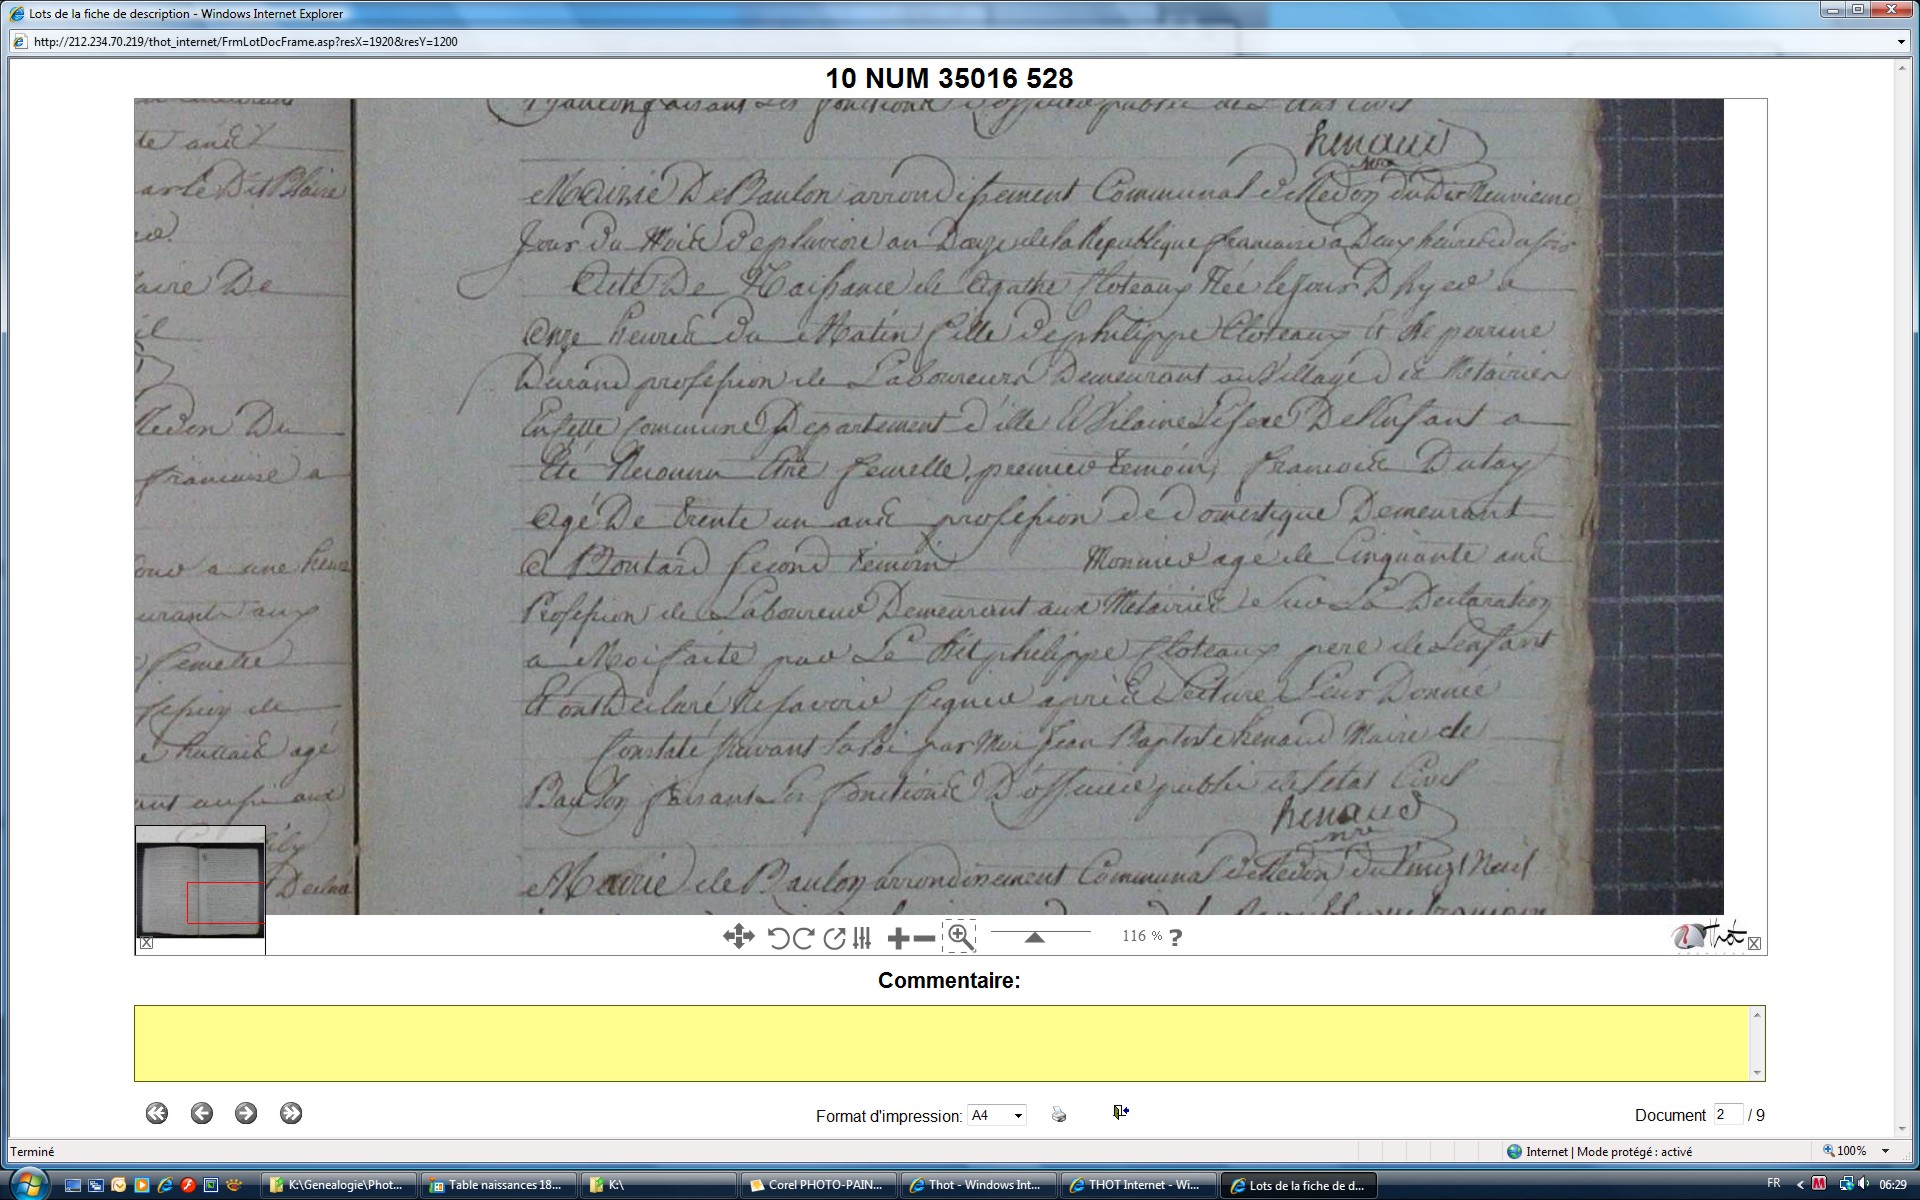 Lots de la fiche de description - Windows Internet Explorer
http://212.234.70.219/thot_internet/FrmLotDocFrame.asp?resX=1920&resY=1200
10 NUM 35016 528
faisant Les fonctions d'officier public de L'Etat Civil
Renaud
Mairie De Baulon arrondissement Communal de Redon du Dix Neuvieme
Jour du Mois de pluviose an Douze de la Republique francaise a Deux heures du soir
Acte De Naissance de Agathe Cloteaux Née le Jour D'hyer a
Onze heures du Matin fille de philippe Cloteaux Et De perrine
Durand profession de Laboureurs Demeurant au Village des Métairies
En cette Commune Département d'ille Et Vilaine Le sexe De L'enfant a
Eté Reconnu Etre femelle, premier temoin, francois Dutay
Agé De trente un ans profession de domestique Demeurant
a Boutard second témoin Monnier agé de Cinquante ans
Profession de Laboureur Demeurant aux Métairies Sur La Declaration
a Moi faite par Le Dit philippe Cloteaux pere de L'enfant
Et ont Declaré Ne savoir signer après Lecture Leur Donnée
Constaté suivant la loi par Moi Jean Baptiste Renaud Maire de
Baulon faisant Les fonctions D'officier public de l'etat Civil
Renaud
Mairie de Baulon arrondissement Communal de Redon du Vingt Neuf
te ans
Redon Du
francaise a
a une heure
aux
femelle
agé
ant aussi aux
116 %
?
Thot
Commentaire:
Format d'impression: A4
Document 2 / 9
Terminé
Internet | Mode protégé : activé
100%
K:\Genealogie\Phot...
Table naissances 18...
K:\
Corel PHOTO-PAIN...
Thot - Windows Int...
THOT Internet - Wi...
Lots de la fiche de d...
FR
06:29